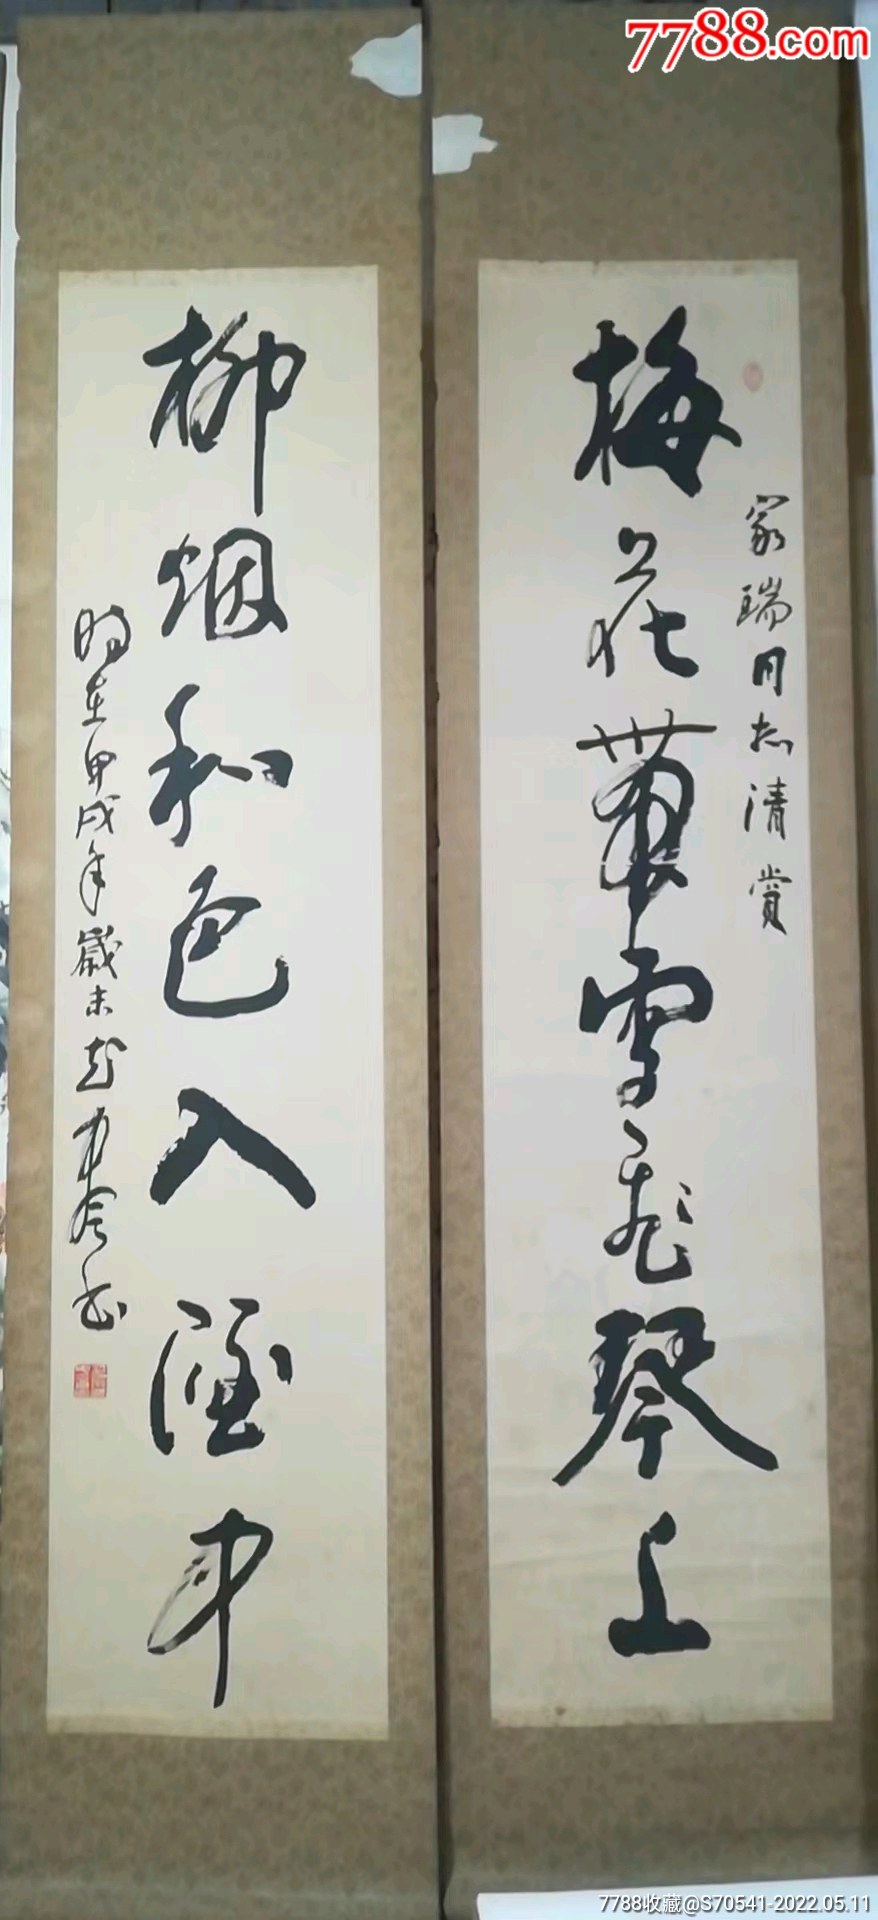 梅花帶雪飛琴上
家瑞同志清賞
柳烟和色入酒中
时在甲戌年歲末书
7788.com
7788收藏@S70541-2022.05.11